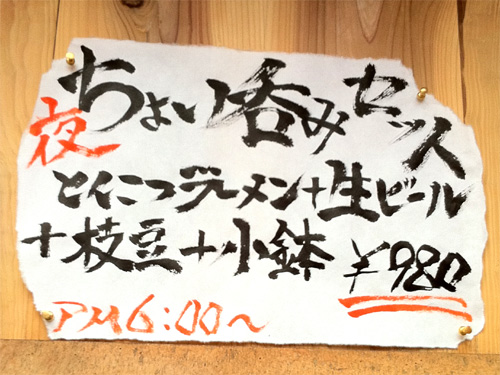 夜ちょい呑みセット
とんこつラーメン+生ビール
+枝豆+小鉢 ¥980
PM6:00〜